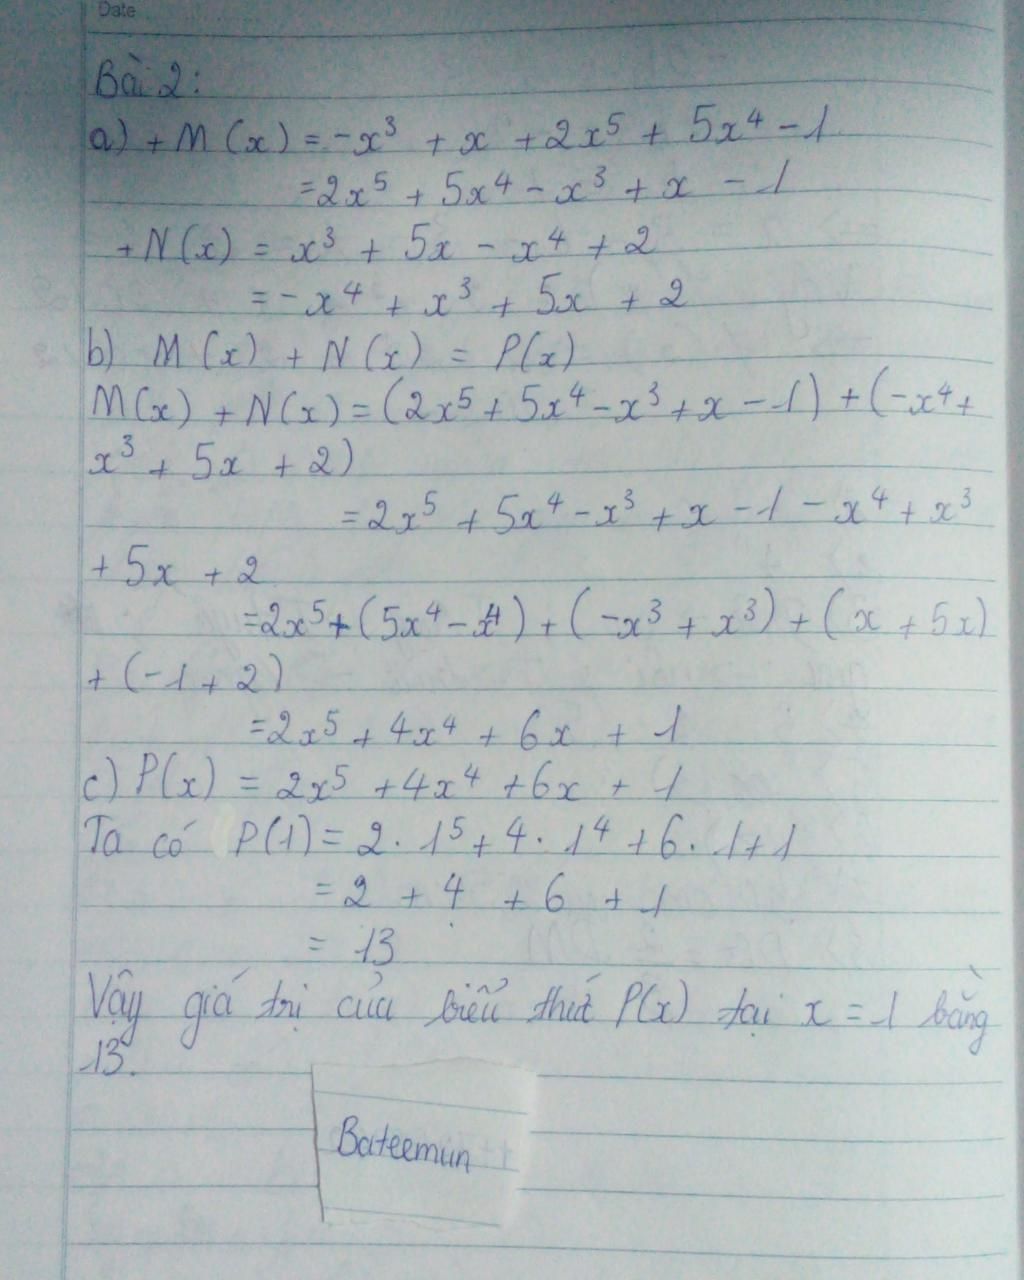 Date
Bài 2:
a) + M(x) = -x³ + x + 2x⁵ + 5x⁴ - 1
= 2x⁵ + 5x⁴ - x³ + x - 1
+ N(x) = x³ + 5x - x⁴ + 2
= -x⁴ + x³ + 5x + 2
b) M(x) + N(x) = P(x)
M(x) + N(x) = (2x⁵ + 5x⁴ - x³ + x - 1) + (-x⁴ +
x³ + 5x + 2)
= 2x⁵ + 5x⁴ - x³ + x - 1 - x⁴ + x³
+ 5x + 2
= 2x⁵ + (5x⁴ - x⁴) + (-x³ + x³) + (x + 5x)
+ (-1 + 2)
= 2x⁵ + 4x⁴ + 6x + 1
c) P(x) = 2x⁵ + 4x⁴ + 6x + 1
Ta có P(1) = 2 . 1⁵ + 4 . 1⁴ + 6 . 1 + 1
= 2 + 4 + 6 + 1
= 13
Vậy giá trị của biểu thức P(x) tại x = 1 bằng
13.
Bateemun